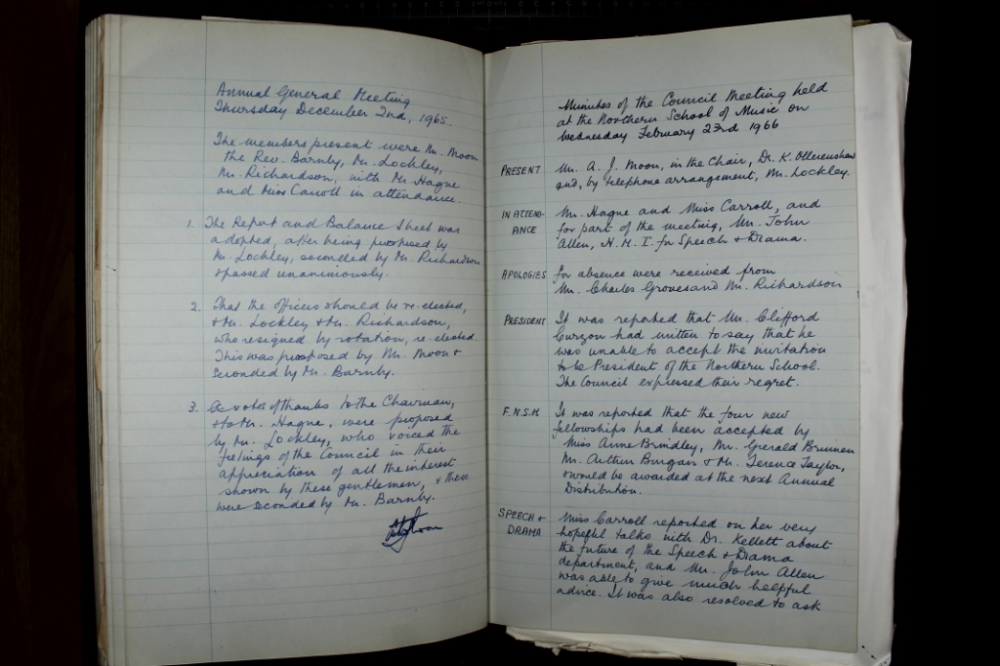 Annual General Meeting
Thursday December 2nd, 1965.
The members present were Mr. Moon
the Rev. Barnby, Mr. Lockley,
Mr. Richardson, with Mr. Hague
and Miss Carroll in attendance.
1. The Report and Balance Sheet was
adopted, after being proposed by
Mr. Lockley, seconded by Mr. Richardson
& passed unanimously.
2. That the officers should be re-elected,
& Mr. Lockley & Mr. Richardson,
who resigned by rotation, re-elected.
This was proposed by Mr. Moon &
seconded by Mr. Barnby.
3. A votes of thanks to the Chairman,
& to Mr. Hague, were proposed
by Mr. Lockley, who voiced the
feelings of the Council in their
appreciation of all the interest
shown by these gentlemen, & these
were seconded by Mr. Barnby.
Minutes of the Council Meeting held
at the Northern School of Music on
Wednesday February 23rd 1966
PRESENT Mr. A. J. Moon, in the Chair, Dr. K. Ollerenshaw
and, by telephone arrangement, Mr. Lockley.
IN ATTEND- Mr. Hague and Miss Carroll, and
ANCE for part of the meeting, Mr. John
Allen, H.M.I. for Speech & Drama.
APOLOGIES for absence were received from
Mr. Charles Groves and Mr. Richardson
PRESIDENT It was reported that Mr. Clifford
Curzon had written to say that he
was unable to accept the invitation
to be President of the Northern School.
The Council expressed their regret.
F.N.S.M. It was reported that the four new
fellowships had been accepted by
Miss Anne Brindley, Mr. Gerald Brinnen
Mr. Arthur Burgan & Mr. Terence Taylor,
& would be awarded at the next Annual
Distribution.
SPEECH & Miss Carroll reported on her very
DRAMA hopeful talks with Dr. Kellett about
the future of the Speech & Drama
department, and Mr. John Allen
was able to give much helpful
advice. It was also resolved to ask